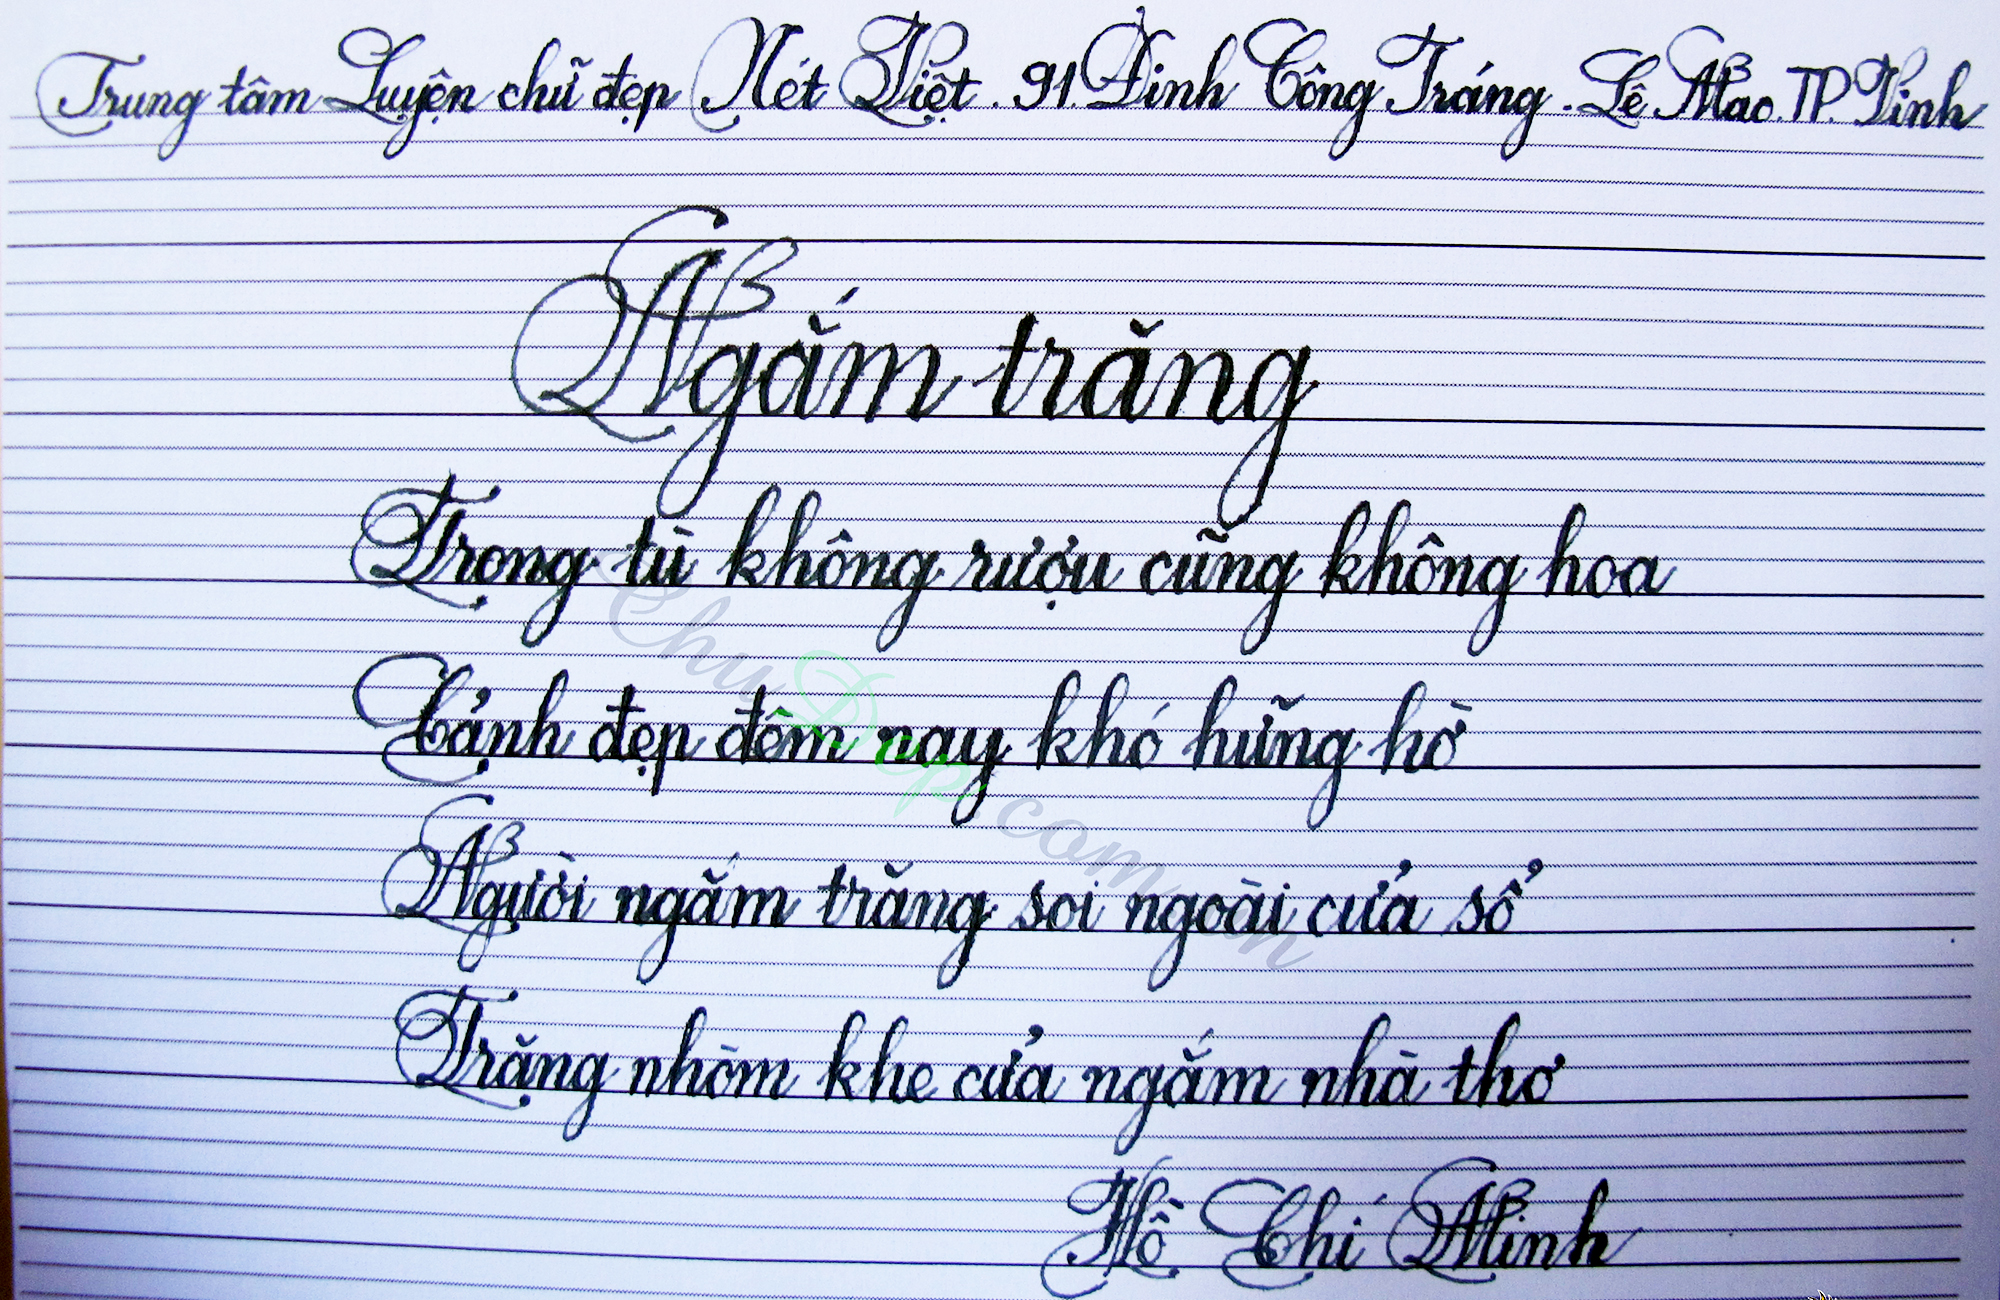 Trung tâm Luyện chữ đẹp Nét Việt. 91. Đinh Công Tráng. Lê Mao. TP. Vinh
Ngắm trăng
Trong tù không rượu cũng không hoa
Cảnh đẹp đêm nay khó hững hờ
Người ngắm trăng soi ngoài cửa sổ
Trăng nhòm khe cửa ngắm nhà thơ
Hồ Chí Minh
ChuDep.com.vn